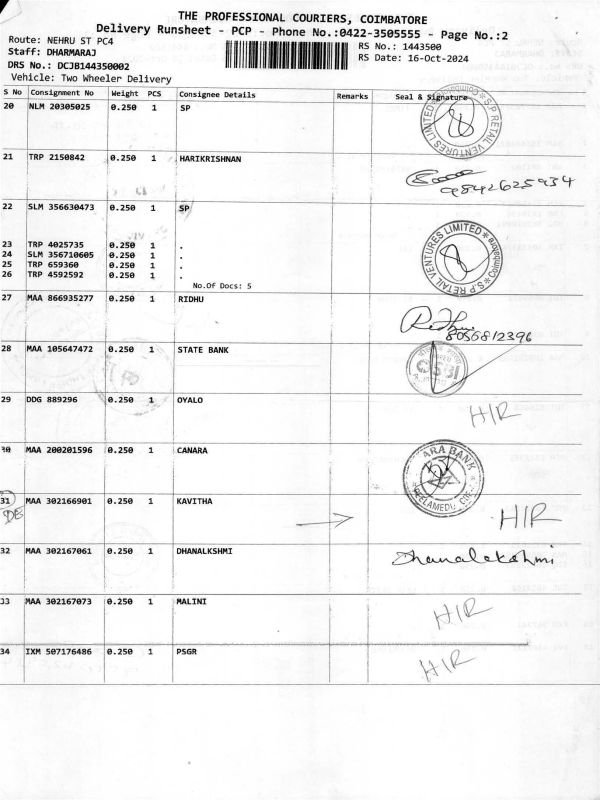 THE PROFESSIONAL COURIERS, COIMBATORE
Delivery Runsheet - PCP - Phone No.:0422-3505555 - Page No.:2
Route: NEHRU ST PC4
RS No.: 1443500
Staff: DHARMARAJ
RS Date: 16-Oct-2024
DRS No.: DCJB144350002
Vehicle: Two Wheeler Delivery
S No Consignment No Weight PCS Consignee Details Remarks Seal & Signature
20 NLM 20305025 0.250 1 SP
S.P RETAIL VENTURES LIMITED Coimbatore
21 TRP 2150842 0.250 1 HARIKRISHNAN
9842625934
22 SLM 356630473 0.250 1 SP
23 TRP 4025735 0.250 1 .
24 SLM 356710605 0.250 1 .
25 TRP 659360 0.250 1 .
26 TRP 4592592 0.250 1 .
No.Of Docs: 5
S.P RETAIL VENTURES LIMITED Coimbatore
27 MAA 866935277 0.250 1 RIDHU
Redhu
8056812396
28 MAA 105647472 0.250 1 STATE BANK
29 DDG 889296 0.250 1 OYALO
H/R
30 MAA 200201596 0.250 1 CANARA
ARA BANK
31 MAA 302166901 0.250 1 KAVITHA
H/R
32 MAA 302167061 0.250 1 DHANALKSHMI
Dhanalakshmi
33 MAA 302167073 0.250 1 MALINI
H/R
34 IXM 507176486 0.250 1 PSGR
H/R